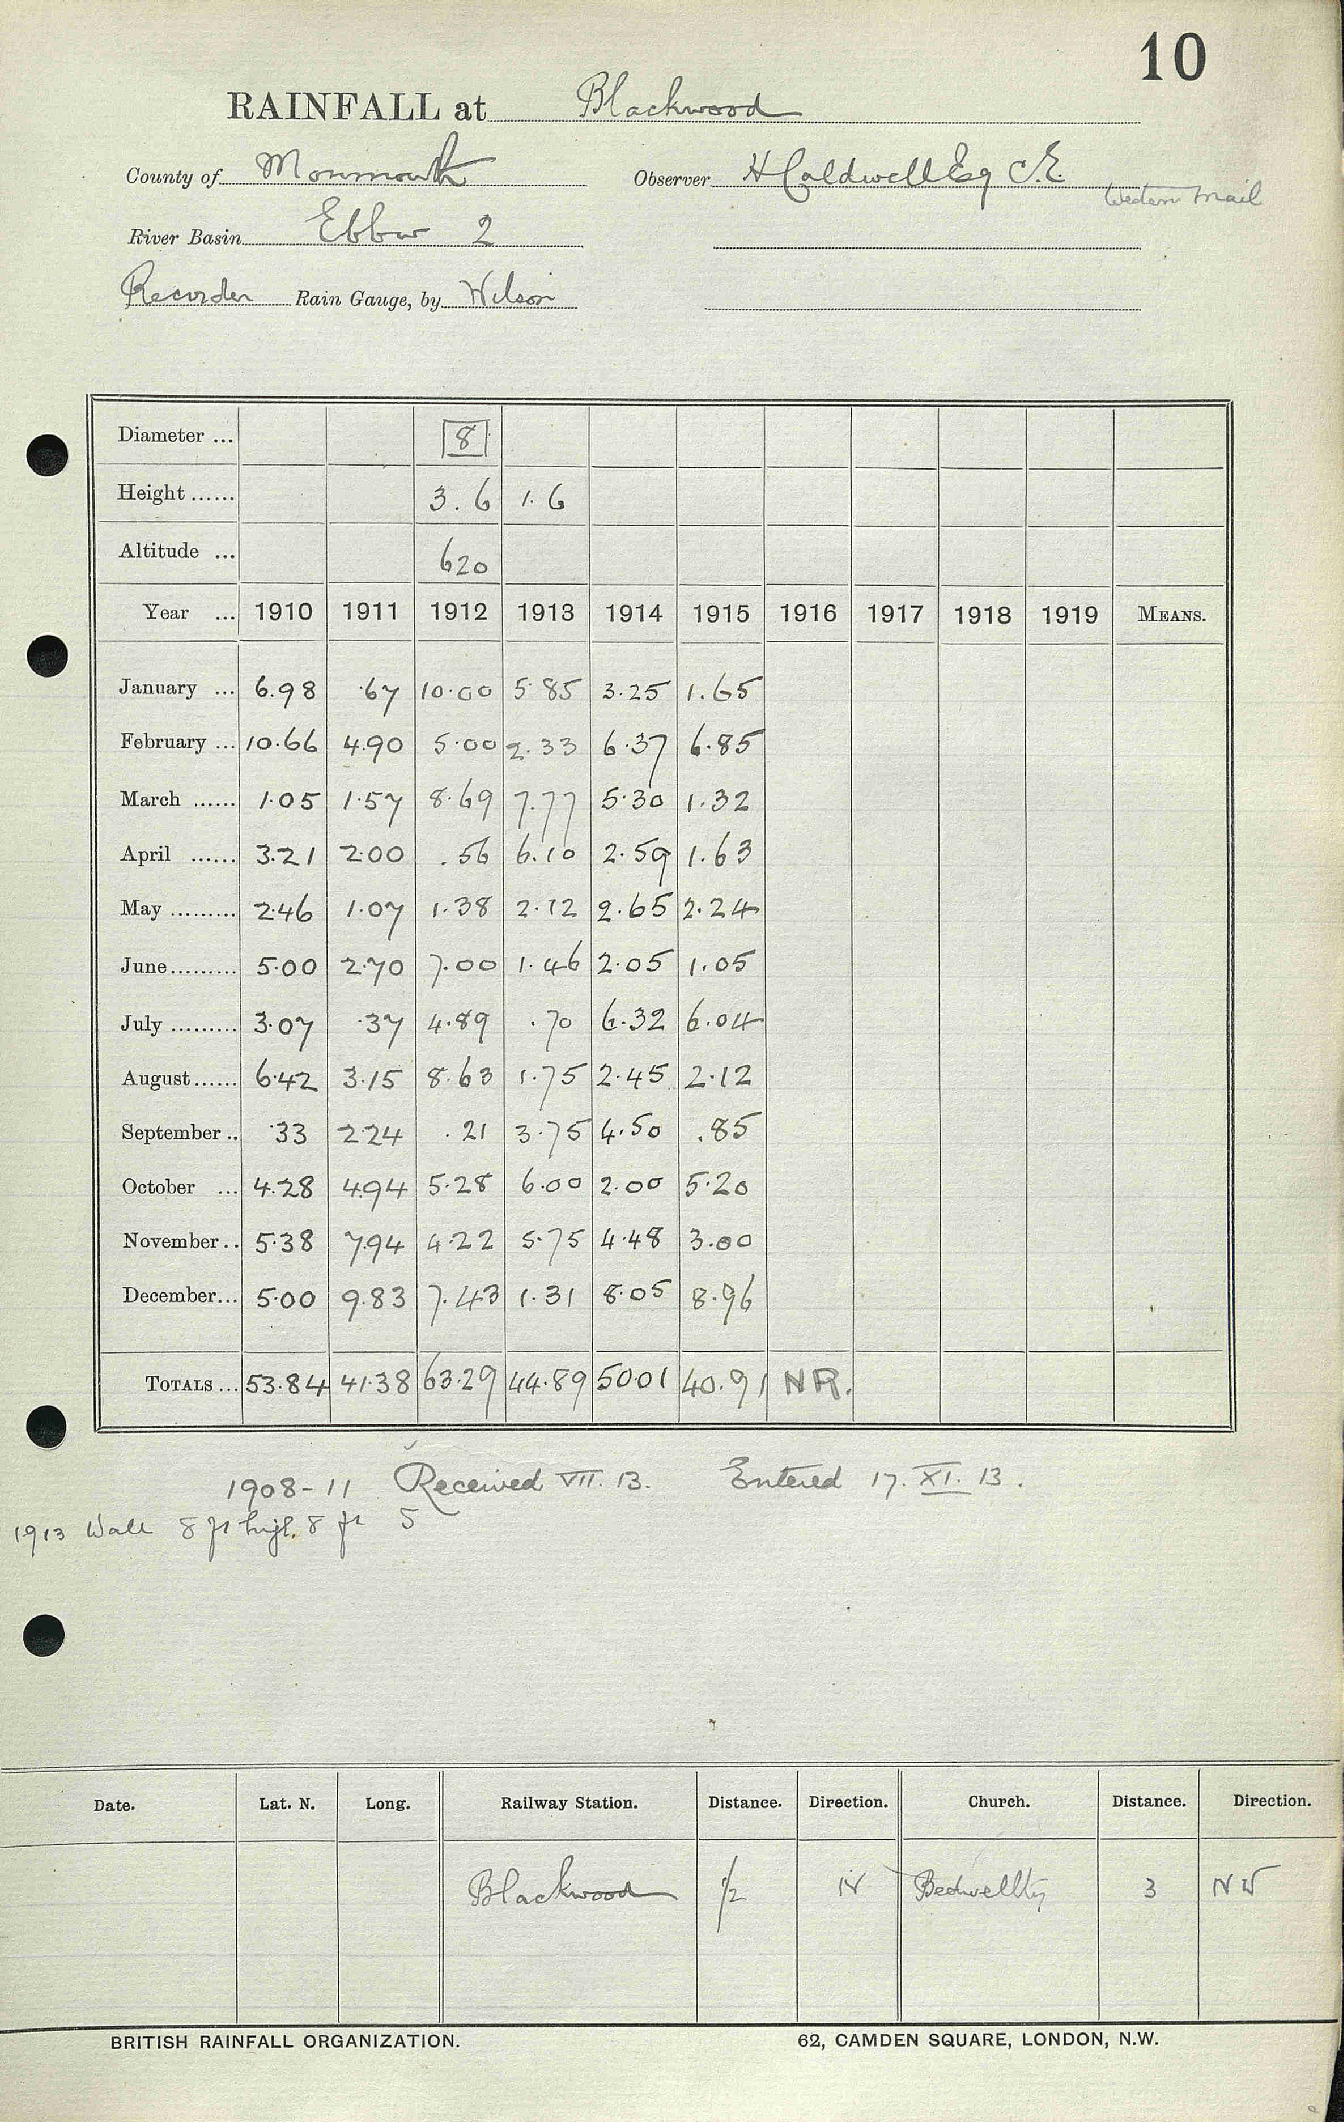 10
RAINFALL at Blackwood
County of Monmouth Observer H Caldwell Esq C.E.
Western Mail
River Basin Ebbw 2
Recorder Rain Gauge, by Wilson
Diameter ... 8
Height ...... 3.6 1.6
Altitude ... 620
Year ... 1910 1911 1912 1913 1914 1915 1916 1917 1918 1919 MEANS.
January ... 6.98 .67 10.00 5.85 3.25 1.65
February ... 10.66 4.90 5.00 2.33 6.37 6.85
March ...... 1.05 1.57 8.69 7.77 5.30 1.32
April ...... 3.21 2.00 .56 6.10 2.59 1.63
May ......... 2.46 1.07 1.38 2.12 2.65 2.24
June......... 5.00 2.70 7.00 1.46 2.05 1.05
July ......... 3.07 .37 4.89 .70 6.32 6.04
August...... 6.42 3.15 8.63 1.75 2.45 2.12
September .. .33 2.24 .21 3.75 4.50 .85
October ... 4.28 4.94 5.28 6.00 2.00 5.20
November.. 5.38 7.94 4.22 5.75 4.48 3.00
December... 5.00 9.83 7.43 1.31 8.05 8.96
TOTALS ... 53.84 41.38 63.29 44.89 50.01 40.91 NR.
1908-11 Received VII. 13. Entered 17. XI. 13.
1913 Wall 8 ft high. 8 ft S
Date. Lat. N. Long. Railway Station. Distance. Direction. Church. Distance. Direction.
Blackwood 1/2 N Bedwellty 3 NW
BRITISH RAINFALL ORGANIZATION. 62, CAMDEN SQUARE, LONDON, N.W.